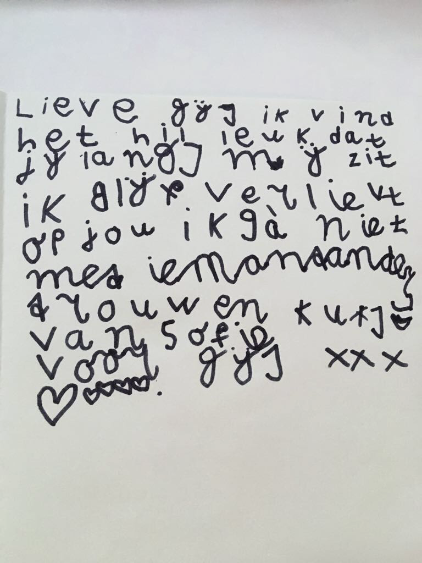 Lieve gijs ik vind
het hil ieuk dat
jij langs mij zit
ik blijf verlievt
op jou ik gà niet
met iemand anders
trouwen kusjes
van Sofie
voor gijs xxx